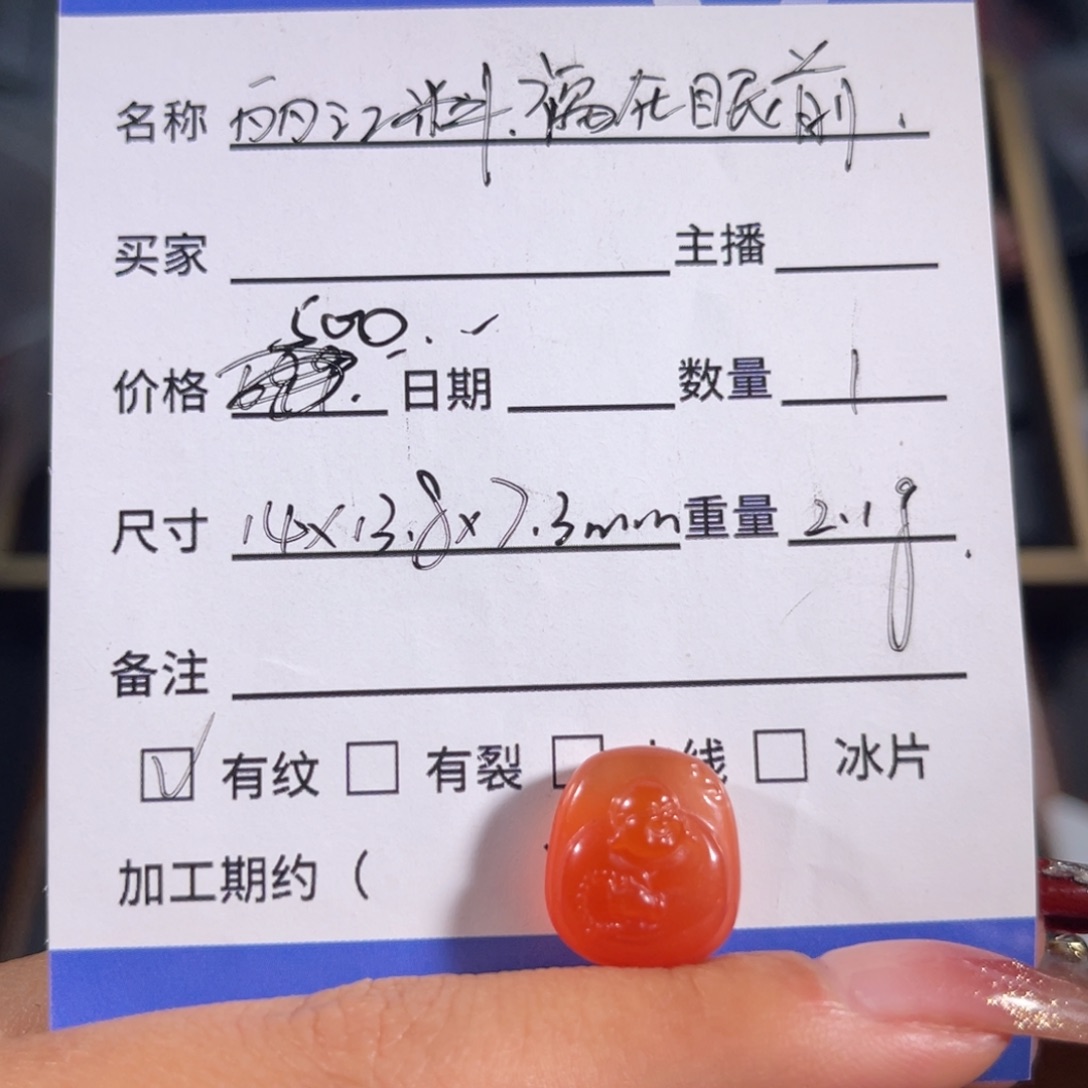 名称 丽江料.福在眼前.
买家 主播
500.
价格 日期 数量 1
尺寸 14×13.8×7.3mm 重量 2.1g.
备注
☑ 有纹 □ 有裂 □ 线 □ 冰片
加工期约（